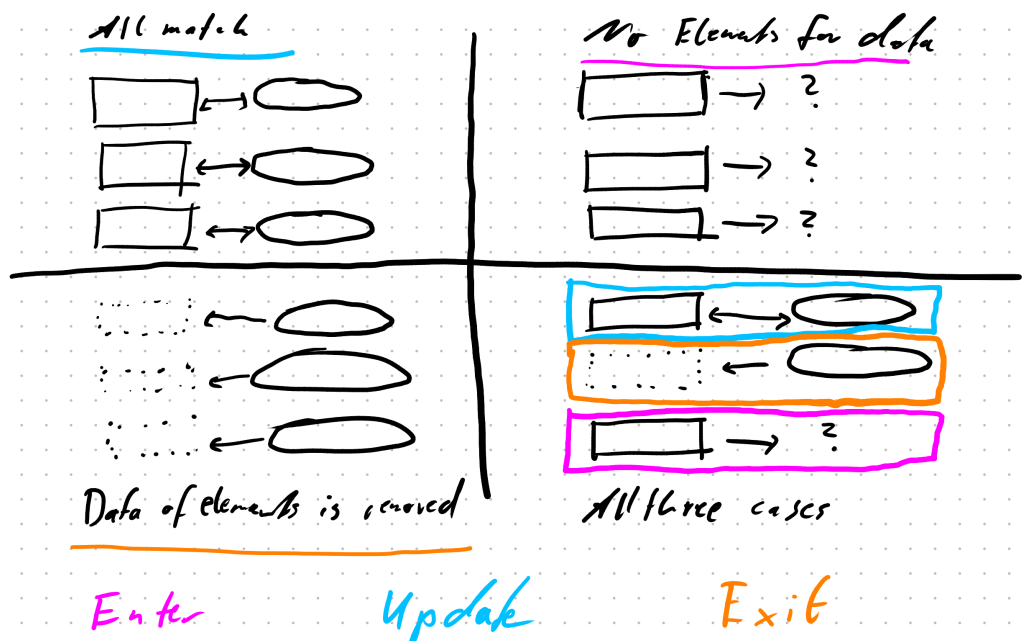 All match
No Elements for data
?
?
?
?
Data of elements is removed
All three cases
Enter
Update
Exit